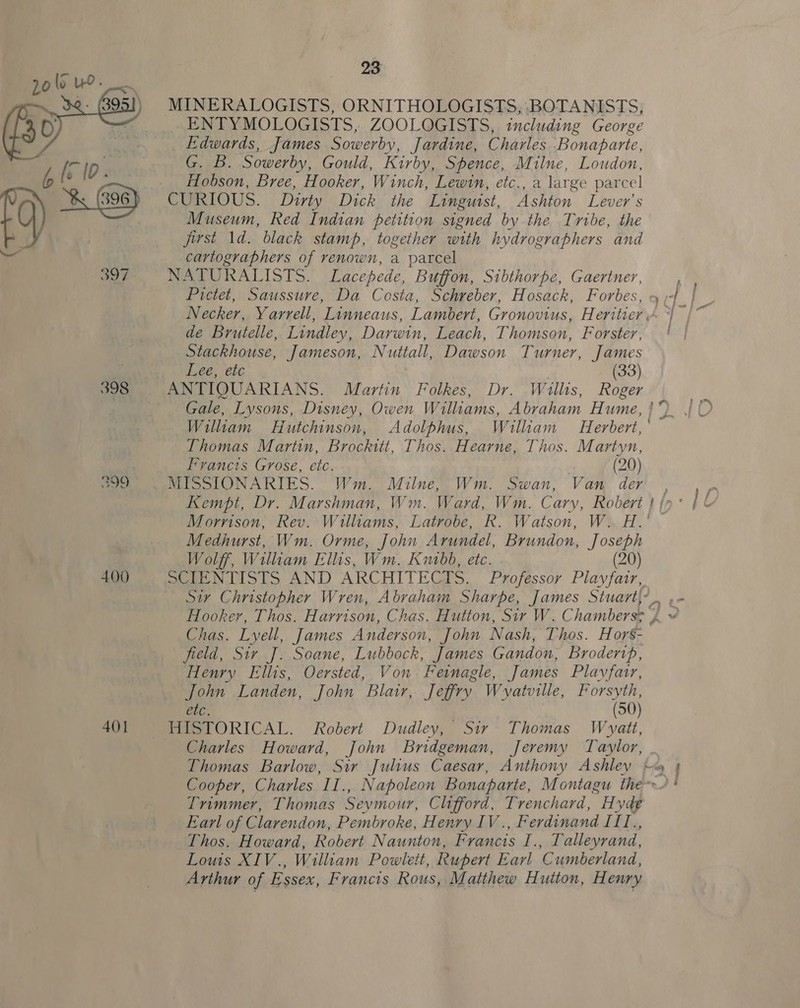 23
395 MINERALOGISTS, ORNITHOLOGISTS, BOTANISTS,
ENTYMOLOGISTS, ZOOLOGISTS, including George
Edwards, James Sowerby, Jardine, Charles Bonaparte,
G. B. Sowerby, Gould, Kirby, Spence, Milne, Loudon,
Hobson, Bree, Hooker, Winch, Lewin, etc., a large parcel
396 CURIOUS. Dirty Dick the Linguist, Ashton Lever's
Museum, Red Indian petition signed by the Tribe, the
first 1d. black stamp, together with hydrographers and
cartographers of renown, a parcel
397 NATURALISTS. Lacepede, Buffon, Sibthorpe, Gaertner,
Pictet, Saussure, Da Costa, Schreber, Hosack, Forbes,
Necker, Yarrell, Linneaus, Lambert, Gronovius, Heritier
de Brutelle, Lindley, Darwin, Leach, Thomson, Forster,
Stackhouse, Jameson, Nuttall, Dawson Turner, James
Lee, etc (33)
398 ANTIQUARIANS. Martin Folkes, Dr. Willis, Roger
Gale, Lysons, Disney, Owen Williams, Abraham Hume,
William Hutchinson, Adolphus, William Herbert,
Thomas Martin, Brockitt, Thos. Hearne, Thos. Martyn,
Francis Grose, etc. (20)
399 MISSIONARIES. Wm. Milne, Wm. Swan, Van der
Kempt, Dr. Marshman, Wm. Ward, Wm. Cary, Robert
Morrison, Rev. Williams, Latrobe, R. Watson, W. H.
Medhurst, Wm. Orme, John Arundel, Brundon, Joseph
Wolff, William Ellis, Wm. Knibb, etc. (20)
400 SCIENTISTS AND ARCHITECTS. Professor Playfair,
Sir Christopher Wren, Abraham Sharpe, James Stuart,
Hooker, Thos. Harrison, Chas. Hutton, Sir W. Chambers,
Chas. Lyell, James Anderson, John Nash, Thos. Hors-
field, Sir J. Soane, Lubbock, James Gandon, Broderip,
Henry Ellis, Oersted, Von Feinagle, James Playfair,
John Landen, John Blair, Jeffry Wyatville, Forsyth,
etc. (50)
401 HISTORICAL. Robert Dudley, Sir Thomas Wyatt,
Charles Howard, John Bridgeman, Jeremy Taylor,
Thomas Barlow, Sir Julius Caesar, Anthony Ashley
Cooper, Charles II., Napoleon Bonaparte, Montagu the
Trimmer, Thomas Seymour, Clifford, Trenchard, Hyde
Earl of Clarendon, Pembroke, Henry IV., Ferdinand III.,
Thos. Howard, Robert Naunton, Francis I., Talleyrand,
Louis XIV., William Powlett, Rupert Earl Cumberland,
Arthur of Essex, Francis Rous, Matthew Hutton, Henry